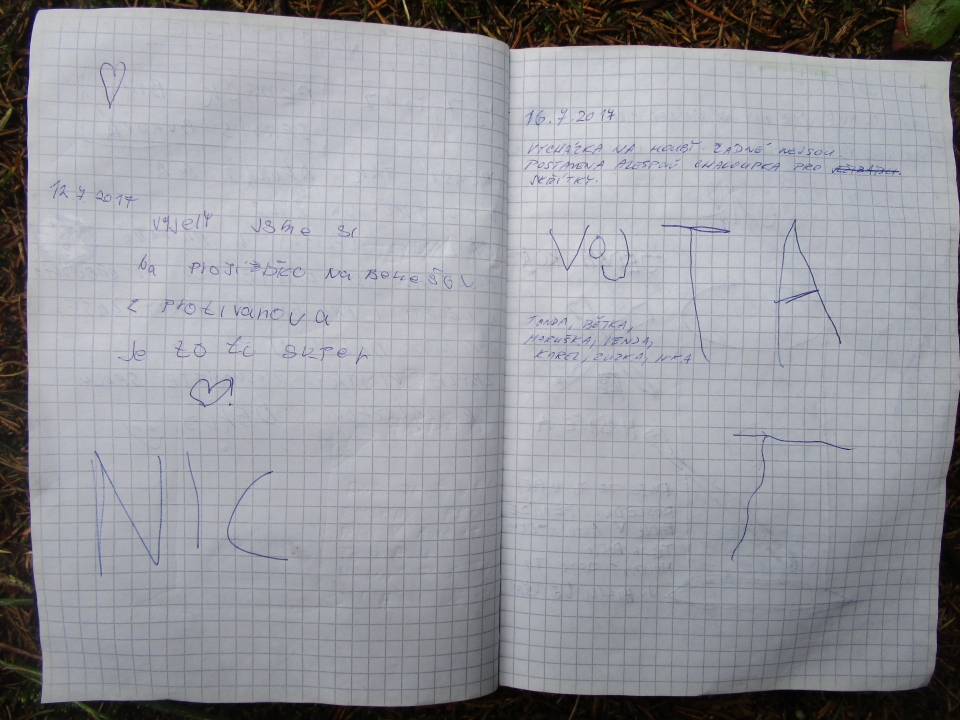 12.7.2017
vyjely jsme si
na projížďko na Benešov
z Protivanova
je to tu super
!
NIC
16.7.2017
VYCHÁZKA NA HOUBY. ŽÁDNÉ NEJSOU.
POSTAVENA ALESPOŇ CHALOUPKA PRO
SKŘÍTKY.
VOJTA
TONDA, BĚTKA,
MARUŠKA, VENDA,
KAREL, ZUZKA,
T